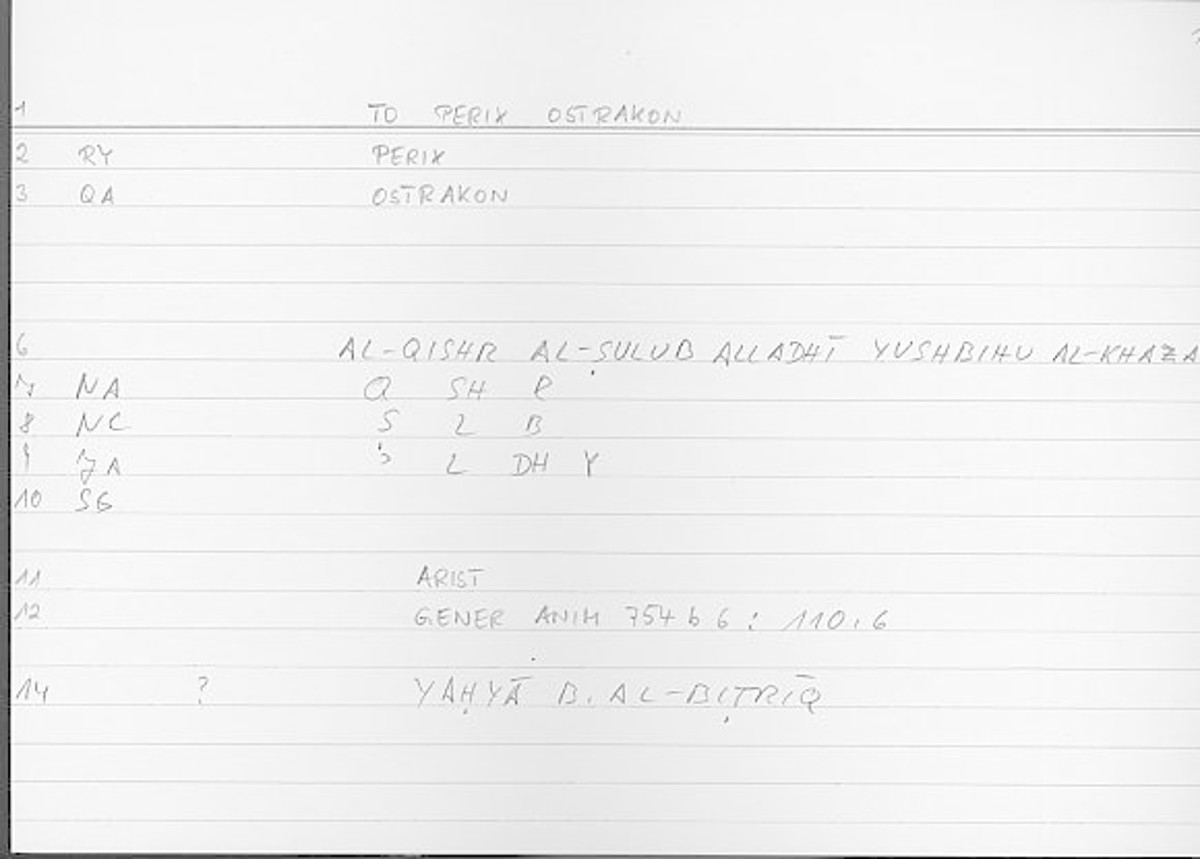 1 TO PERIX OSTRAKON
2 RY PERIX
3 QA OSTRAKON
6 AL-QISHR AL-ṢULUB ALLADHĪ YUSHBIHU AL-KHAZA
7 NA Q SH R
8 NC Ṣ L B
9 JA ʾ L DH Y
10 SG
11 ARIST
12 GENER ANIM 754 b 6 : 110.6
14 ? YAḤYĀ B. AL-BIṬRĪQ